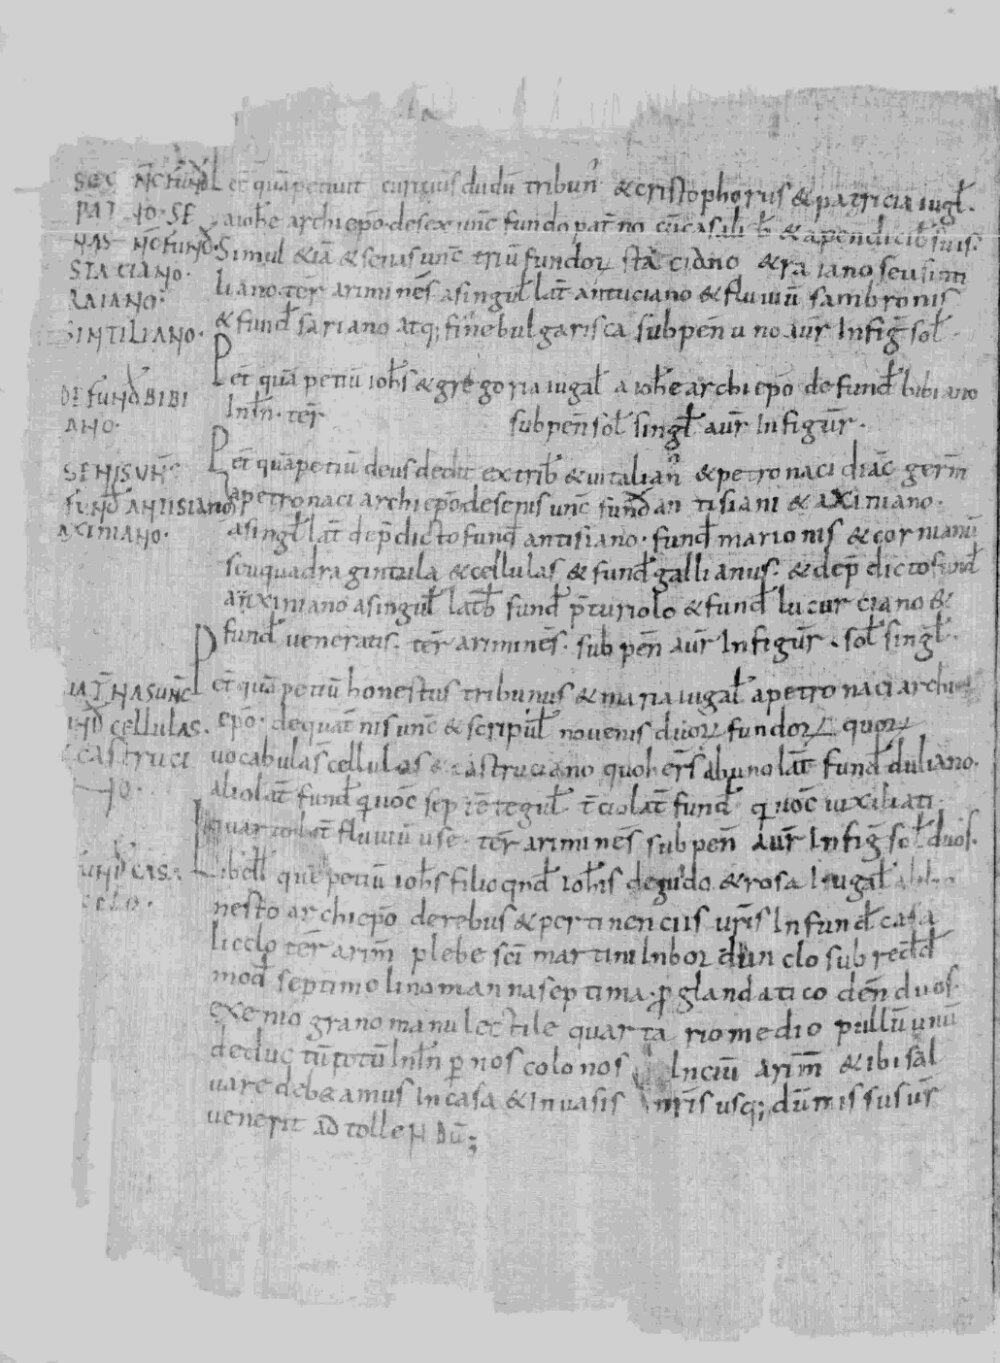 SEX ŪNC FUND
PAT NO · SE
NAS ŪNC FUND ·
STACIANO ·
RAIANO ·
SINTILIANO ·
Pet̄ quā petiuit curicius dudū tribun̄ & cristophorus & patricia iugl̄ ·
a ioh̄e archiep̄o · de sex unc̄ fundo pat̄no cū casalib̄ & apendicib̄ suis ·
Simul & iā & senas unc̄ triū fundor̄ sta ciano & raiano seu sinti
liano · ter̄ ariminēs a singul̄ lat̄ antuciano & fluuiū sambronis
& fund̄ sariano atq; fine bulgarisca sub pen̄ uno aur̄ Infiḡ sol̄
DE FUND BIBI
ANO ·
Pet̄ quā petiū ioh̄s & gregoria iugal̄ a ioh̄e archiep̄o de fund̄ bibiano
Inl̄n · ter̄ sub pen̄ sol̄ singl̄ aur̄ Infigur̄ ·
SENIS UNC̄
FUND ANTISIANO
AXIMANO ·
Pet̄ quā petiū deusdedit ex trib̄ & uitalian̄ & petronaci diac̄ germ̄
a petronaci archiep̄o de senis unc̄ fund̄ antisiani & aximano ·
a singl̄ lat̄ dep̄dicto fund̄ antisiano · fund̄ marionis & cornianū
seu quadragintula & cellulas & fund̄ gallianus · & dep̄dicto fund̄
anximano a singul̄ latb̄ fund̄ p̄turiolo & fund̄ lucurciano &
fund̄ ueneratis · ter̄ ariminēs · sub pen̄ aur̄ Infigur̄ · sol̄ singl̄ ·
UAT̄NAS UNC̄
UND CELLULAS ·
& CASTRUCI
ANO ·
Pet̄ quā petiū honestus tribunus & maria iugal̄ a petronaci archi
ep̄o · de quat̄nis unc̄ & scripul̄ nouenis duor̄ fundor̄ quor̄
uocabulas cellulas & castruciano quoh̄ers ab uno lat̄ fund̄ duliano ·
alio lat̄ fund̄ q uoc̄ septētegul̄ · t̄cio lat̄ fund̄ q uoc̄ uixiliati
quarto lat̄ fluuiū use · ter̄ ariminēs sub pen̄ aur̄ Infiḡ sol̄ duos ·
UND CAS
CELO ·
Libell̄ quē petiū ioh̄s filio qnd̄ ioh̄is de guido & rosa Iugal̄
nesto archiep̄o de rebus & pertinenciis ur̄is In fund̄ casa
licelo ter̄ arim̄ plebe sc̄i martini In bordunclo sub redd̄
mod̄ septimo lino manna septima · p̄ glandatico den̄ duos ·
exenio grano manu lectile quarta rio medio pullū unū
deduc tū totū Inl̄n p nos colonos Inciū arim̄ & ibi sal
uare debeamus In casa & In uasis nr̄is usq; dū missus ur̄
uenerit ad tollendū ;